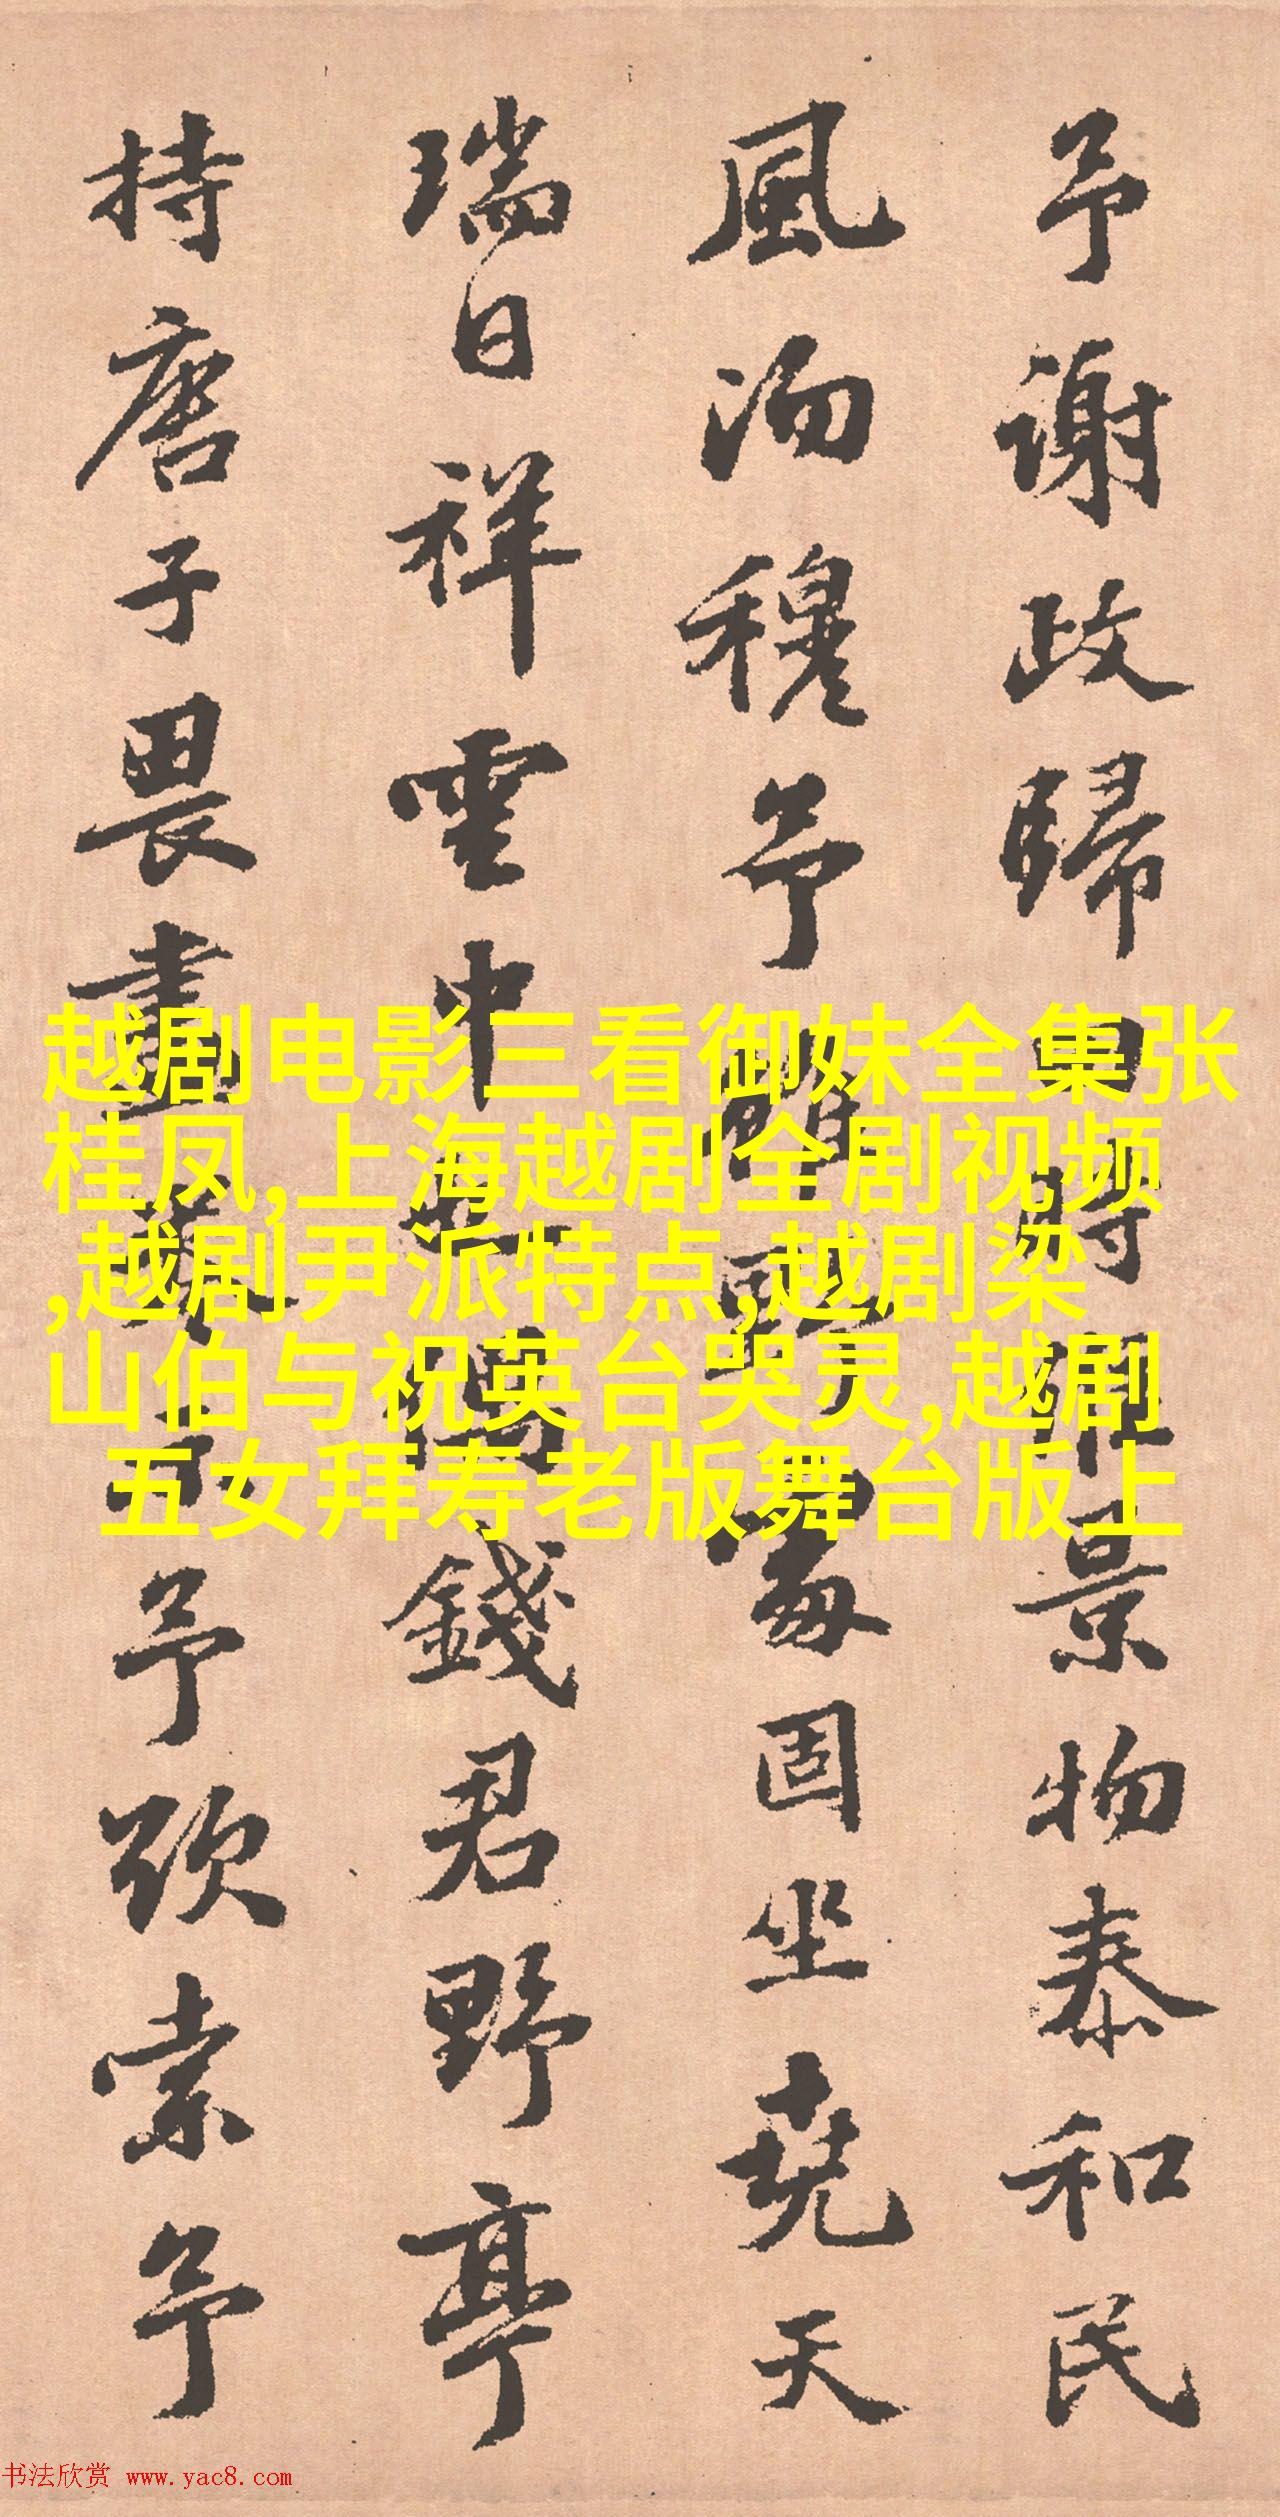 予謝政歸田時惟景物泰和民
風沕穆予雖野處固坐堯天
瑞日祥雲中也偶錢君野亭
持唐子畏畫示予欣索予
越剧电影三看御妹全集张
桂凤,上海越剧全剧视频
,越剧尹派特点,越剧梁
山伯与祝英台哭灵,越剧
五女拜寿老版舞台版上
书法欣赏 www.yac8.com